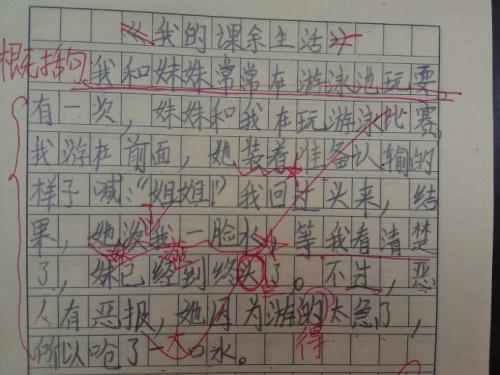 《我的课余生活》
概括句 我和妹妹常常在游泳池玩耍。
有一次，妹妹和我在玩游泳比赛
我游在前面，她装着准备认输的
样子喊："姐姐!"我回过头来，结
果，她泼我一脸水。等我看清楚
了，妹已经到终点了。不过，恶
人有恶报，她因为游的太急了，
得
所以呛了一大口水。